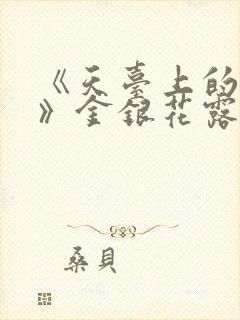 《天臺上的
》金銀花露
桑貝